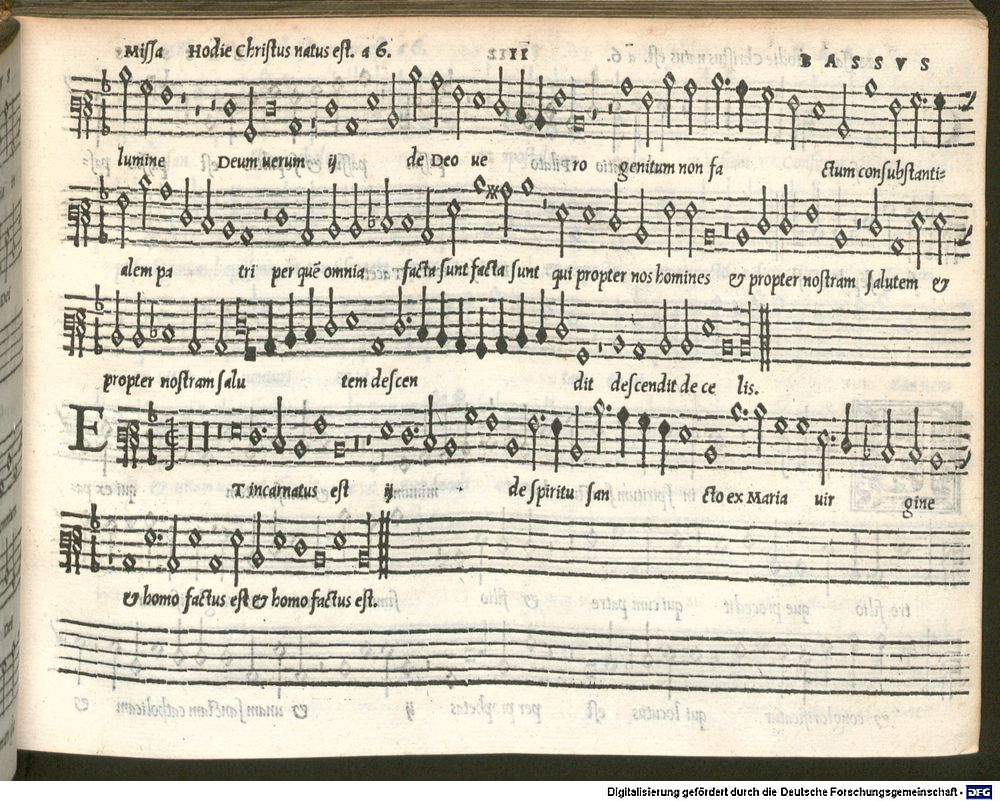 Missa Hodie Christus natus est. a 6. BASSVS
lumine Deum uerum ij de Deo ue ro genitum non fa ctum consubstanti=
alem pa tri per quẽ omnia facta sunt facta sunt qui propter nos homines & propter nostram salutem &
propter nostram salu tem descen dit descendit de ce lis.
E T incarnatus est ij de spiritu san cto ex Maria uir gine
& homo factus est & homo factus est.
Digitalisierung gefördert durch die Deutsche Forschungsgemeinschaft - DFG